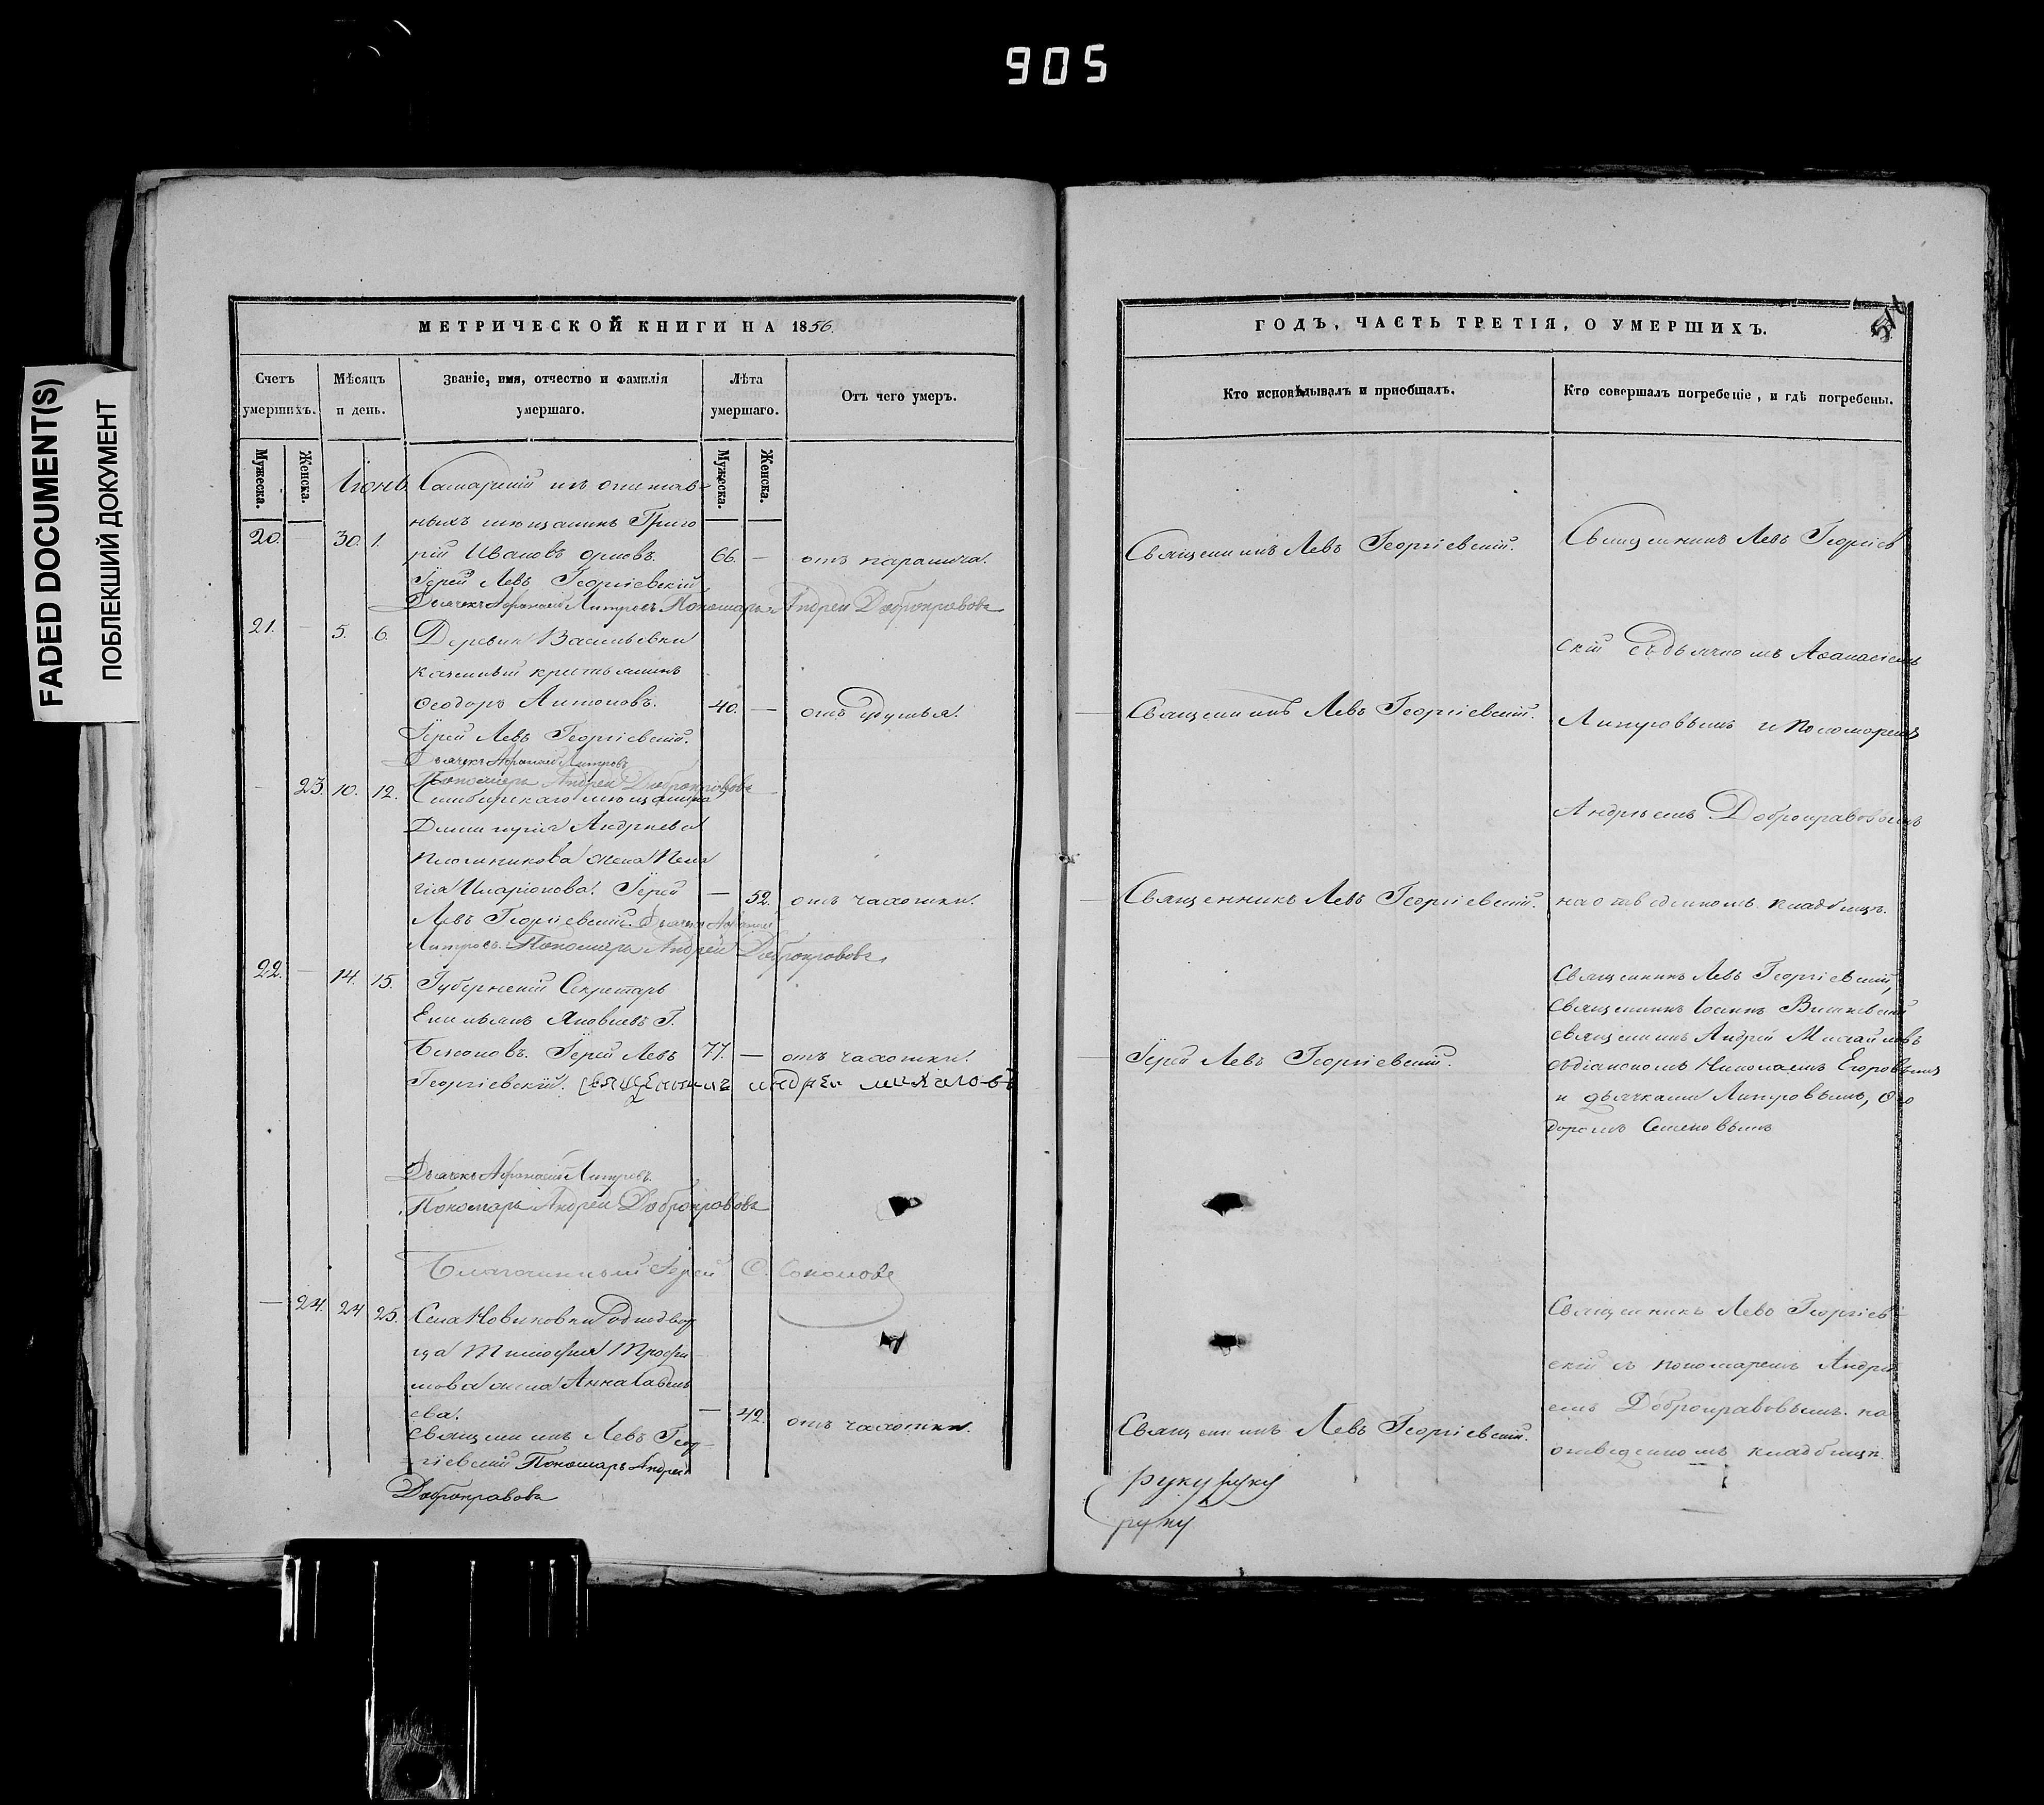 905
FADED DOCUMENT(S)
ПОБЛЕКШИЙ ДОКУМЕНТ
МЕТРИЧЕСКОЙ КНИГИ НА 1856.
Счетъ умершихъ.
Мѣсяцъ и день.
Званіе, имя, отчество и фамилія умершаго.
Лѣта умершаго.
Отъ чего умеръ.
Мужеска.
Женска.
Мужеска.
Женска.
Іюнь
20. — 30. 1.
ныхъ мѣщанинъ Григо
рій Ивановъ Орловъ. 66. — отъ паралича.
Іерей Левъ Георгіевскій
Дьячекъ Афанасій Пономарь Андрей Добронравовъ
21. — 5. 6. Деревни Васильевки
казенный крестьянинъ
Ѳеодоръ Антоновъ. 40. — отъ удушья.
Іерей Левъ Георгіевскій.
Дьячекъ Афанасій
Пономарь Андрей Добронравовъ
— 23. 10. 12. Симбирскаго мѣщанина
Димитрія Андреева
Плотникова жена Пела
гія Иларіонова. Іерей — 52. отъ чахотки.
Левъ Георгіевскій. Дьячекъ Афанасій
Пономарь Андрей Добронравовъ
22. — 14. 15. Губернскій Секретарь
Емильянъ Яковлевъ Г.
Іерей Левъ 77. — отъ чахотки.
Георгіевскій. Священникъ Андрей Михаиловъ
Дьячекъ Афанасій
Пономарь Андрей Добронравовъ
Благочинный Іерей С. Соколовъ
— 24. 24 25. Села Новиковки Однодвор
ца Тимофея Трофи
мова жена Анна Савель
ева. — 42. отъ чахотки.
Священникъ Левъ Геор
гіевскій Пономарь Андрей
Добронравовъ
ГОДЪ, ЧАСТЬ ТРЕТІЯ, О УМЕРШИХЪ.
Кто исповѣдывалъ и пріобщалъ.
Кто совершалъ погребеніе, и гдѣ погребены.
Священникъ Левъ Георгіевскій.
Священникъ Левъ Георгіев
скій съ дьячкомъ Аѳанасіемъ
Священникъ Левъ Георгіевскій.
и пономаремъ
Андреемъ Добронравовымъ
Священникъ Левъ Георгіевскій.
на отведенномъ кладбищѣ.
Священникъ Левъ Георгіевскій,
священникъ Іоаннъ
священникъ Андрей Михайловъ
съ діакономъ Николаемъ Егоровымъ
и дьячками Ѳео
доромъ Семеновымъ
Іерей Левъ Георгіевскій.
Священникъ Левъ Георгіев
скій съ пономаремъ Андре
емъ Добронравовымъ на
отведенномъ кладбищѣ.
Священникъ Левъ Георгіевскій.
руку руку
руку